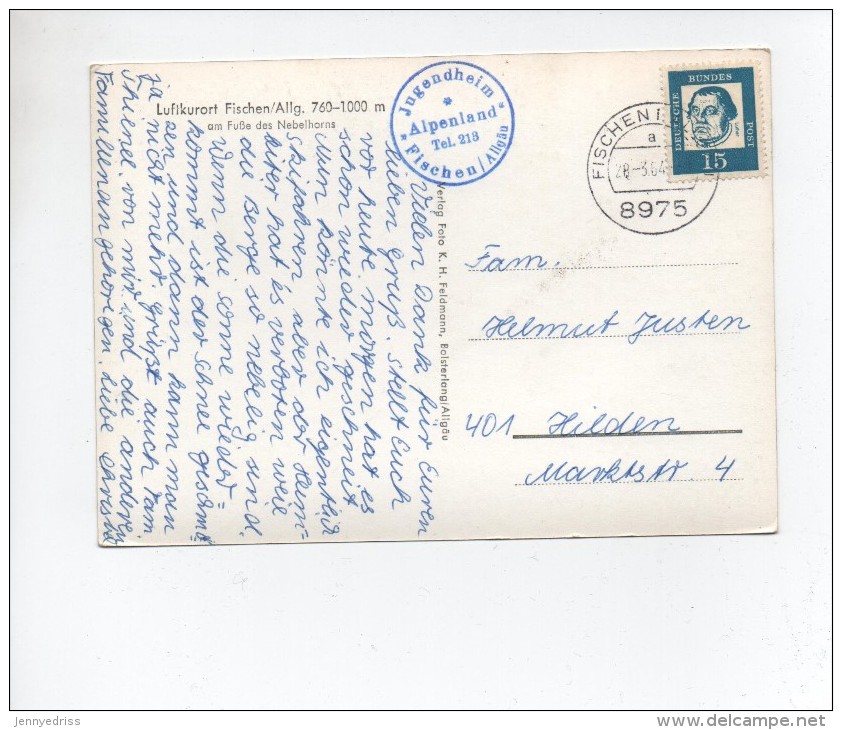 Luftkurort Fischen/Allg. 760–1000 m
am Fuße des Nebelhorns
Jugendheim
"Alpenland"
Tel. 218
Fischen/Allgäu
Verlag Foto K. H. Feldmann, Bolsterlang/Allgäu
Vielen Dank für Euren
lieben Gruß. Stellt Euch
vor heute morgen hat es
schon wieder geschneit
Nun könnte ich eigentlich
skifahren aber der Heim-
leiter hat es verboten weil
die Berge so nebelig sind.
Wenn die Sonne wieder=
kommt ist der Schnee geschmol=
zen und dann kann man
ja nicht mehr. Grüßt auch Fam.
von mir und die anderen
Familienangehörigen. Liebe
FISCHEN I
a
28.-3.64
8975
DEUTSCHE BUNDESPOST
15
Fam.
Helmut Justen
401 Hilden
Marktstr. 4
jennyedriss
delcampe.net